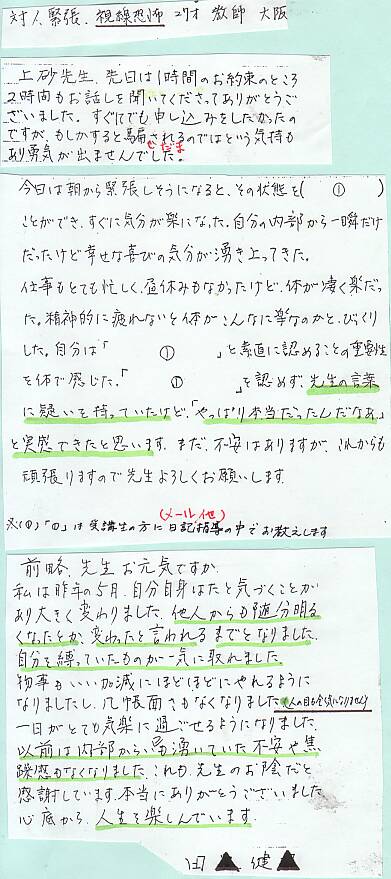 対人緊張、視線恐怖 27才 教師 大阪
上砂先生、先日は1時間のお約束のところ
2時間もお話しを聞いてくださってありがとうご
ざいました。すぐにでも申し込みをしたかったの
ですが、もしかすると騙されるのではという気持も
だま
あり勇気が出ませんでした。
今日は朝から緊張しそうになると、その状態を( ① )
ことができ、すぐに気分が楽になった。自分の内部から一瞬だけ
だったけど幸せな喜びの気分が湧き上ってきた。
仕事もとても忙しく、昼休みもなかったけど、体が凄く楽だっ
た。精神的に疲れないと体がこんなに楽なのかと、びっくり
した。自分は「 ① 」と素直に認めることの重要性
を体で感じた。「 ① 」を認めず、先生の言葉
に疑いを持っていたけど、「やっぱり本当だったんだなあ」
と実感できたと思います。まだ、不安はありますが、これからも
頑張りますので先生よろしくお願いします。
(メール他)
※(①)「①」は受講生の方に日記指導の中でお教えします
前略、先生お元気ですか。
私は昨年の5月、自分自身はたと気づくことが
あり大きく変わりました。他人からも随分明る
くなったとか、変わったと言われるまでとなりました。
自分を縛っていたものが一気に取れました。
物事もいい加減にほどほどにやれるように
なりましたし、几帳面さもなくなりました。人の目も全く気になりません
一日がとても気楽に過ごせるようになりました。
以前は内部から湧いていた不安や焦
躁感がなくなりました。これも、先生のお陰だと
感謝しています。本当にありがとうございました
心底から、人生を楽しんでいます。
田▲ 健▲